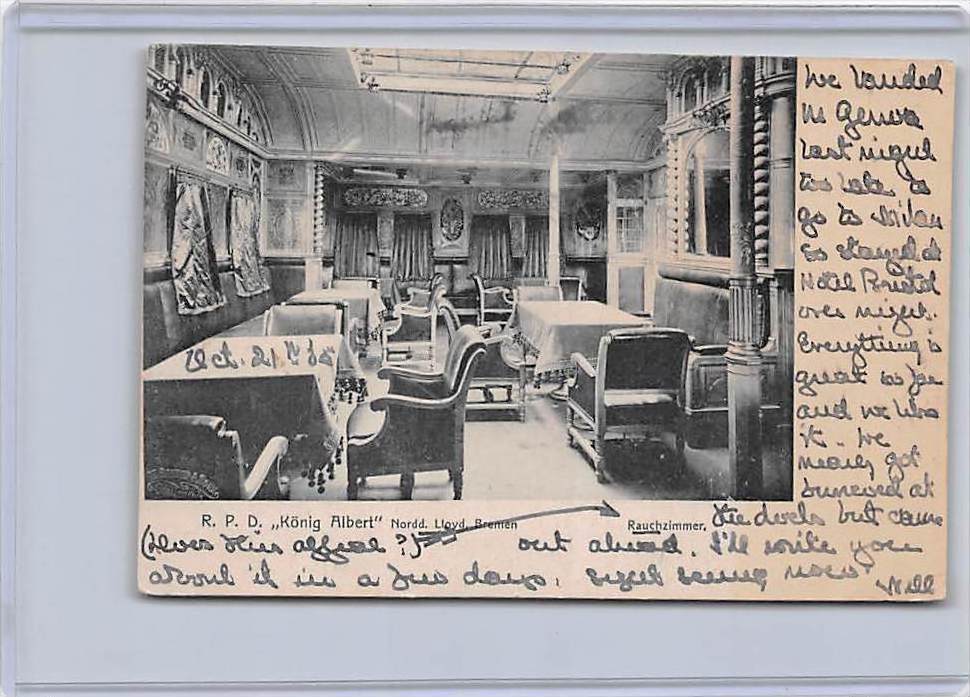 We landed
in Genoa
last night
too late to
go to Milan
so stayed at
Hotel Bristol
over night.
Everything is
great so far
and we like
it. We
nearly got
at
the docks but came
out ahead. I'll write you
about it in a few days. sight seeing now
Will
Oct. 21st 05
R. P. D. „König Albert" Nordd. Lloyd, Bremen
Rauchzimmer.
(Does this appeal?)